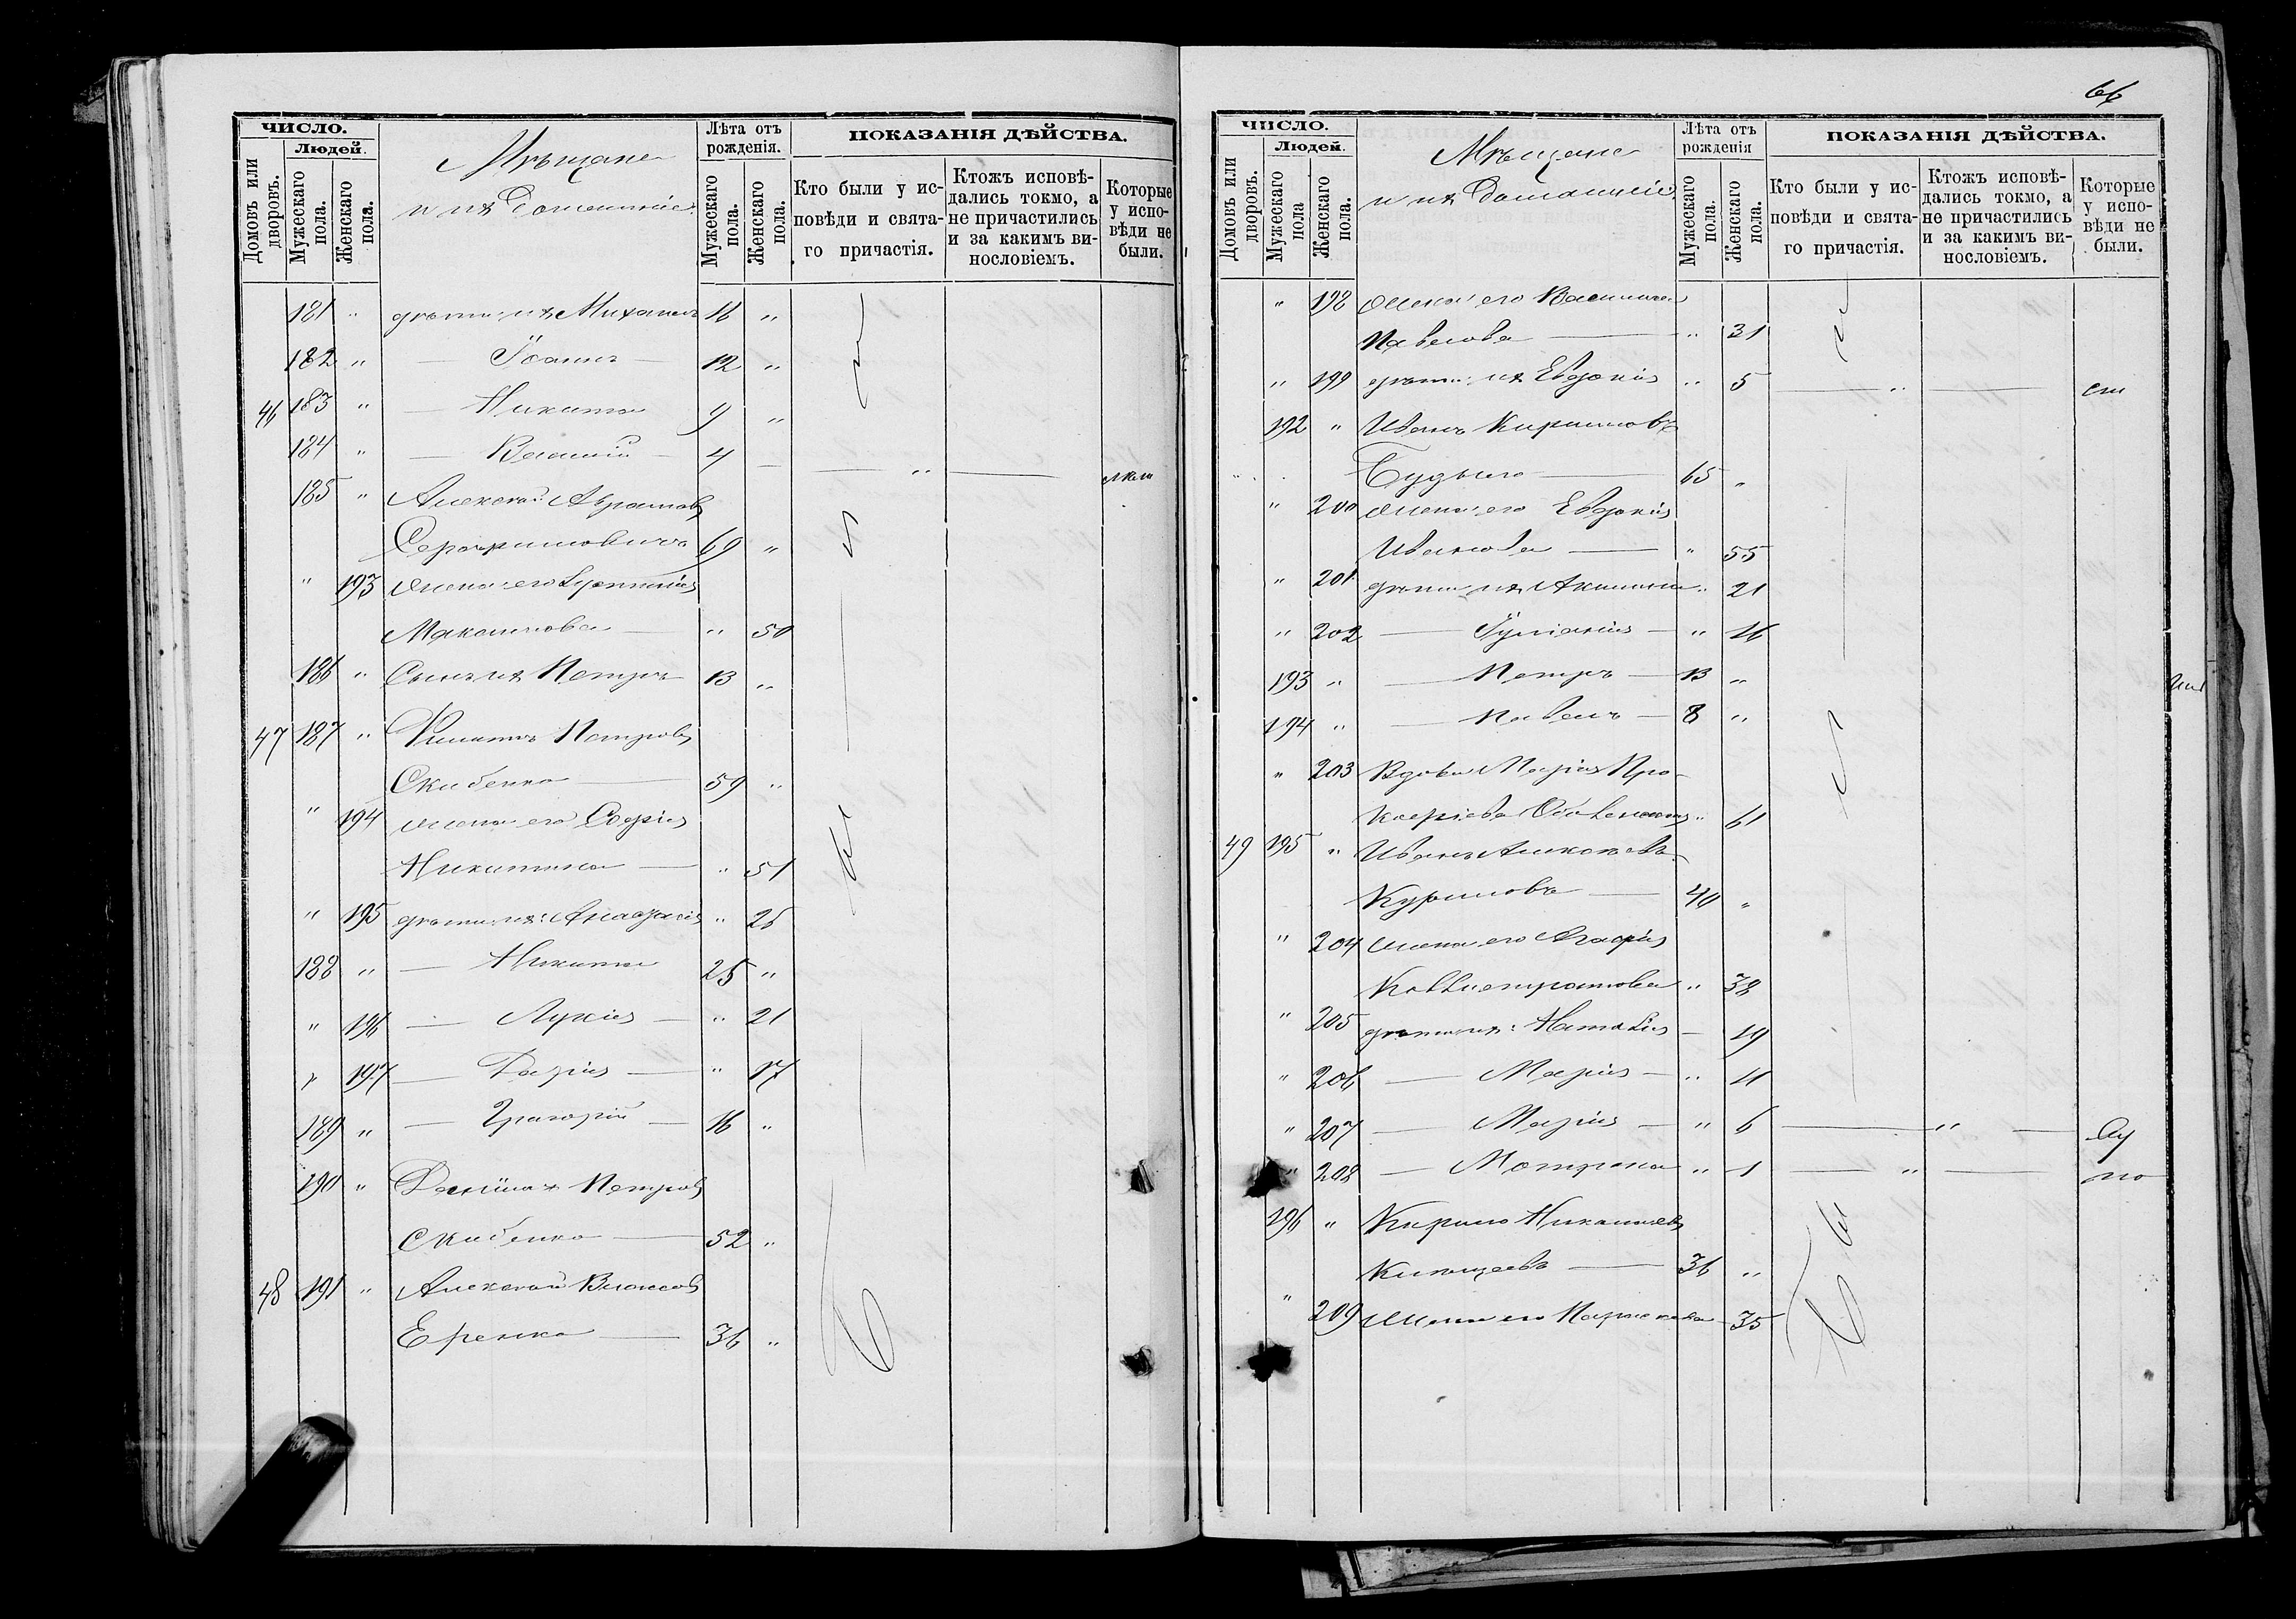 ЧИСЛО.
Людей.
Домовъ или дворовъ.
Мужескаго пола.
Женскаго пола.
Мѣщане
и ихъ домашніе.
Лѣта отъ рожденія.
Мужескаго пола.
Женскаго пола.
ПОКАЗАНІЯ ДѢЙСТВА.
Кто были у исповѣди и святаго причастія.
Ктожъ исповѣдались токмо, а не причастились и за какимъ винословіемъ.
Которые у исповѣди не были.
181 " дѣти ихъ Михаилъ 16 "
182 " — Іоаннъ — 12 "
46 183 " — Никита 9 "
184 " — Василій — 4 — — " —
185 " Алексѣй Аврамовъ
69 "
" 193 жена его
Максимова — " 50
186 " Сынъ ихъ Петръ 13 "
47 187 " Филиппъ Петровъ
Скибенко — 59 "
" 194 жена его Софія
Никитина — " 51
" 195 дѣти ихъ: Анастасія " 25
188 " — Никита 25 "
" 196 — Лукія — " 21
" 197 — Дарія — " 17
189 " — Григорій — 16 "
190 " Даніилъ Петровъ
Скибенко — 52 "
48 191 " Алексѣй Власовъ
Еренко — 36 "
66
ЧИСЛО.
Людей.
Домовъ или дворовъ.
Мужескаго пола
Женскаго пола.
Мѣщане
и ихъ домашніе.
Лѣта отъ рожденія
Мужескаго пола.
Женскаго пола.
ПОКАЗАНІЯ ДѢЙСТВА.
Кто были у исповѣди и святаго причастія.
Ктожъ исповѣдались токмо, а не причастились и за какимъ винословіемъ.
Которые у исповѣди не были.
" 198 жена его Василиса
Павлова — " 31
" 199 дѣти ихъ Евдокія " 5 — " —
192 " Иванъ Кирилловъ
— 65 "
" 200 жена его Евдокія
Иванова — " 55
" 201 дѣти ихъ Акилина " 21
" 202 — Іуліанія — " 16
193 " — Петръ — 13 "
194 " — Павелъ — 8 "
" 203 Вдова Марія Про-
кофіева " 61
49 195 " Иванъ Алексѣевъ
Куриловъ — 40 "
" 204 жена его Агафія
Каллистратова " 38
" 205 дѣти ихъ: Наталія — 19
" 206 — Марія — " 11
" 207 — Марія — " 6 — " —
" 208 — Мотрона " 1 — " —
196 " Кирило
— 36 "
" 209 жена его Параскева — 35